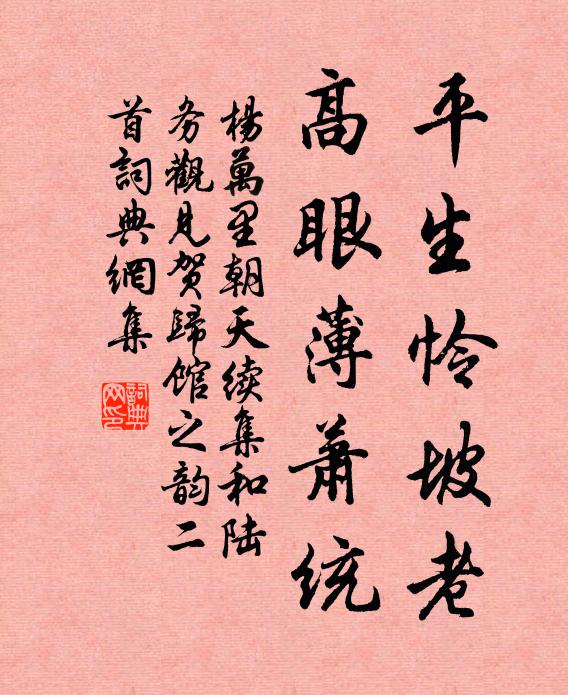 平生怜坡老
高眼薄萧统
杨萬里朝天续集和陆
务觀見贺歸馆之韵二
首詞典網集
詞典
网印